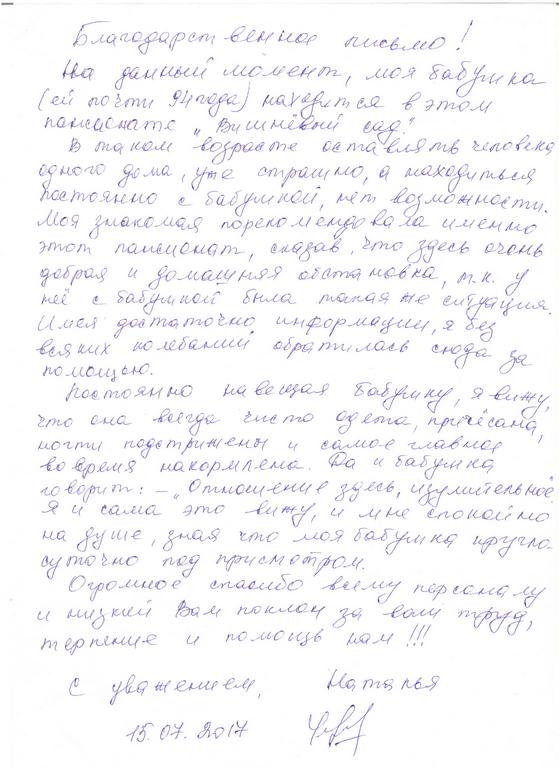 Благодарственное письмо!
На данный момент, моя бабушка
(ей почти 94 года) находится в этом
пансионате „Вишнёвый сад".
В таком возрасте оставлять человека
одного дома, уже страшно, а находиться
постоянно с бабушкой, нет возможности.
Моя знакомая порекомендовала именно
этот пансионат, сказав, что здесь очень
добрая и домашняя обстановка, т.к. у
неё с бабушкой была такая же ситуация.
Имея достаточно информации, я без
всяких колебаний обратилась сюда за
помощью.
Постоянно навещая бабушку, я вижу,
что она всегда чисто одета, причёсана,
ногти подстрижены и самое главное
во время накормлена. Да и бабушка
говорит: – „Отношение здесь, изумительное".
Я и сама это вижу, и мне спокойно
на душе, зная что моя бабушка кругло
суточно под присмотром.
Огромное спасибо всему персоналу
и низкий Вам поклон за ваш труд,
терпение и помощь нам!!!
С уважением, Наталья
15.07.2017